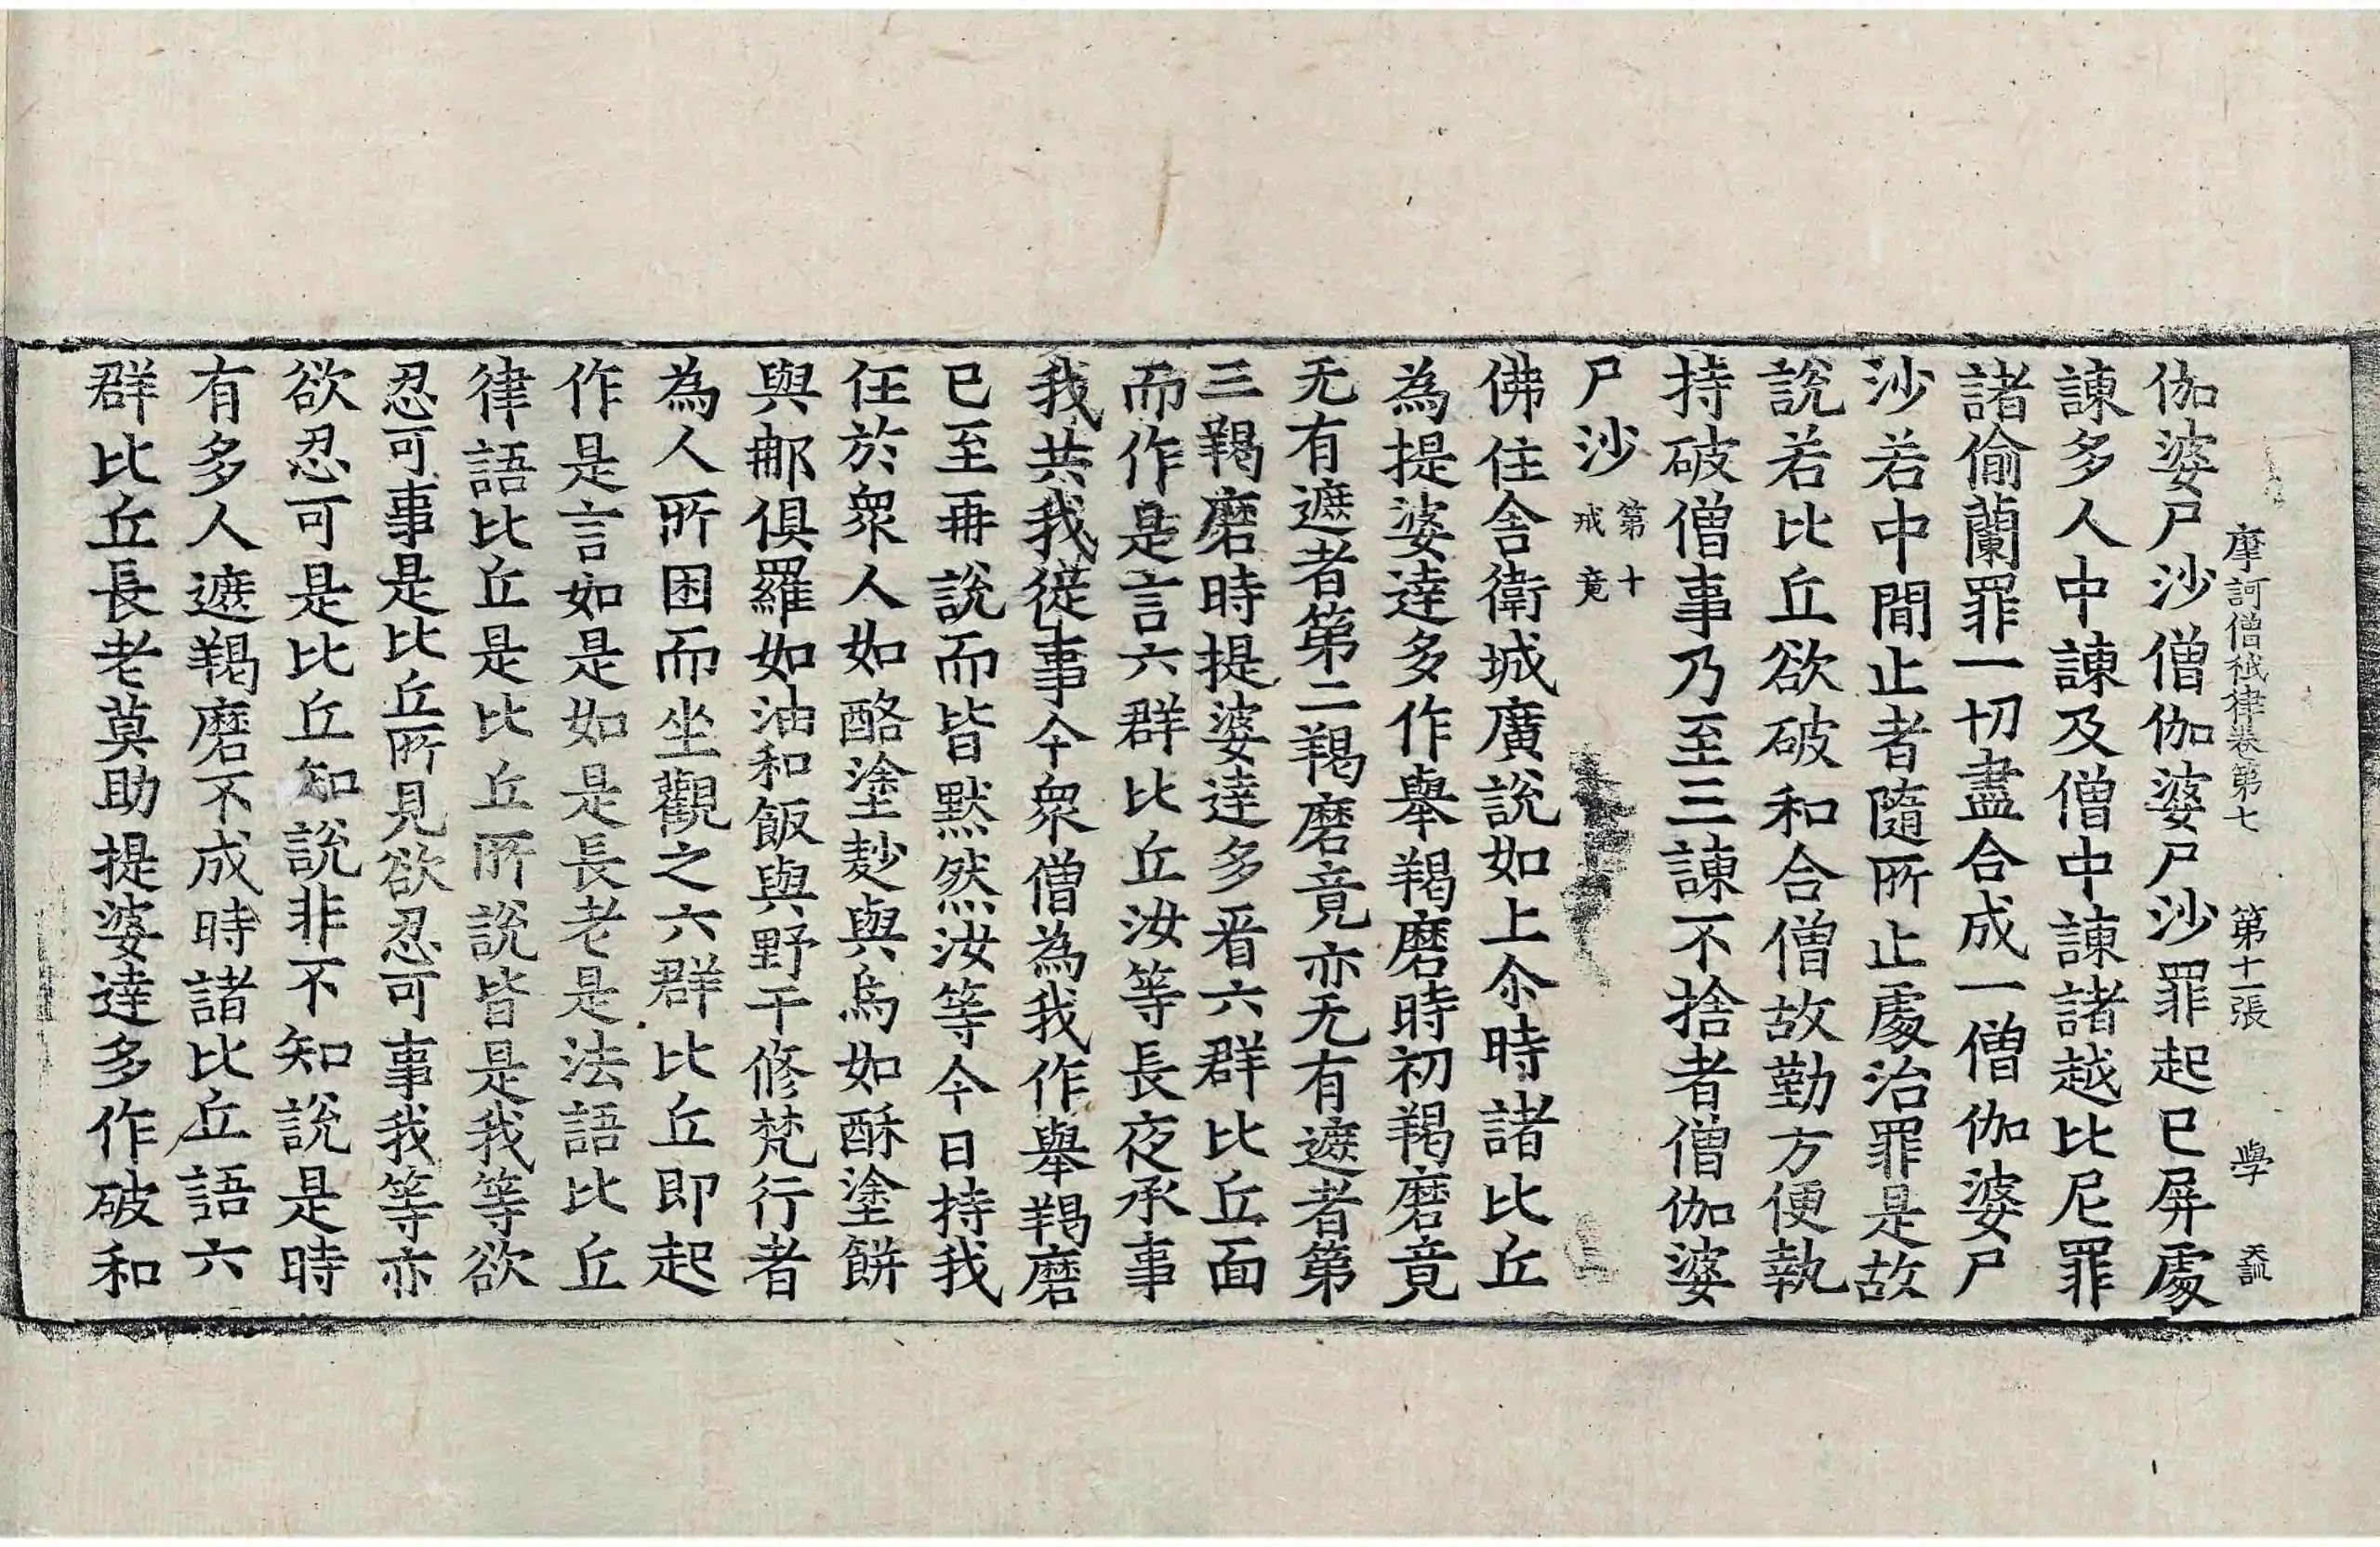 摩訶僧祇律卷第七　第十一張　學　天訓
伽婆尸沙僧伽婆尸沙罪起已屏處
諫多人中諫及僧中諫諸越比尼罪
諸偷蘭罪一切盡合成一僧伽婆尸
沙若中間止者隨所止處治罪是故
說若比丘欲破和合僧故勤方便執
持破僧事乃至三諫不捨者僧伽婆
尸沙第十戒竟
佛住舍衛城廣說如上尒時諸比丘
為提婆達多作舉羯磨時初羯磨竟
无有遮者第二羯磨竟亦无有遮者第
三羯磨時提婆達多㸔六群比丘面
而作是言六群比丘汝等長夜承事
我共我從事今衆僧為我作舉羯磨
已至再說而皆黙然汝等今日持我
任於衆人如酪塗麨與烏如酥塗餅
與𨚗俱羅如油和飯與野干修梵行者
為人所困而坐觀之六群比丘即起
作是言如是如是長老是法語比丘
律語比丘是比丘所說皆是我等欲
忍可事是比丘所見欲忍可事我等亦
欲忍可是比丘知說非不知說是時
有多人遮羯磨不成時諸比丘語六
群比丘長老莫助提婆達多作破和